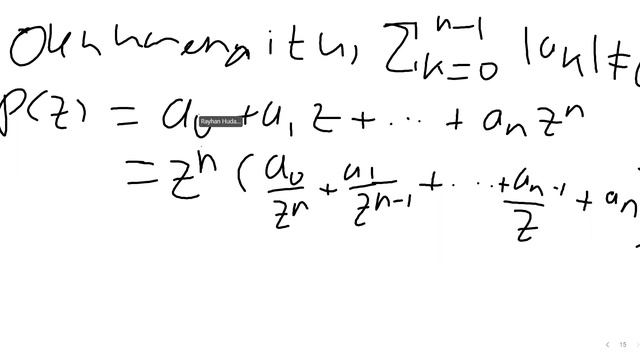 Oleh karena itu, ∑_{k=0}^{n-1} |a_k| ≠
P(z) = a_0 + a_1 z + ... + a_n z^n
= z^n ( a_0/z^n + a_1/z^{n-1} + ... + a_{n-1}/z + a_n
Rayhan Huda...
15